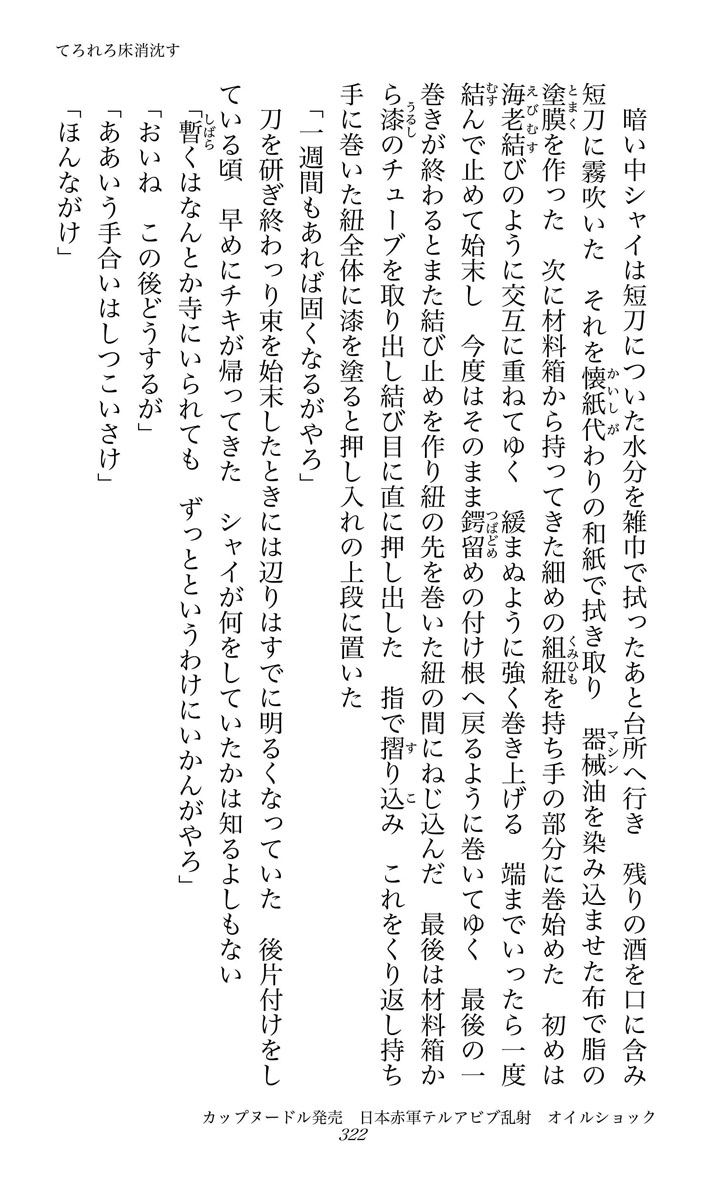 てろれろ床消沈す
暗い中シャイは短刀についた水分を雑巾で拭ったあと台所へ行き　残りの酒を口に含み
短刀に霧吹いた　それを懐紙代わりの和紙で拭き取り　器械油を染み込ませた布で脂の
かいしが
マシン
塗膜を作った　次に材料箱から持ってきた細めの組紐を持ち手の部分に巻始めた　初めは
とまく
くみひも
海老結びのように交互に重ねてゆく　緩まぬように強く巻き上げる　端までいったら一度
えびむす
結んで止めて始末し　今度はそのまま鍔留めの付け根へ戻るように巻いてゆく　最後の一
むす
つばどめ
巻きが終わるとまた結び止めを作り紐の先を巻いた紐の間にねじ込んだ　最後は材料箱か
ら漆のチューブを取り出し結び目に直に押し出した　指で摺り込み　これをくり返し持ち
うるし
す
こ
手に巻いた紐全体に漆を塗ると押し入れの上段に置いた
「一週間もあれば固くなるがやろ」
刀を研ぎ終わっり束を始末したときには辺りはすでに明るくなっていた　後片付けをし
ている頃　早めにチキが帰ってきた　シャイが何をしていたかは知るよしもない
「暫くはなんとか寺にいられても　ずっとというわけにいかんがやろ」
しばら
「おいね　この後どうするが」
「ああいう手合いはしつこいさけ」
「ほんながけ」
カップヌードル発売　日本赤軍テルアビブ乱射　オイルショック
322